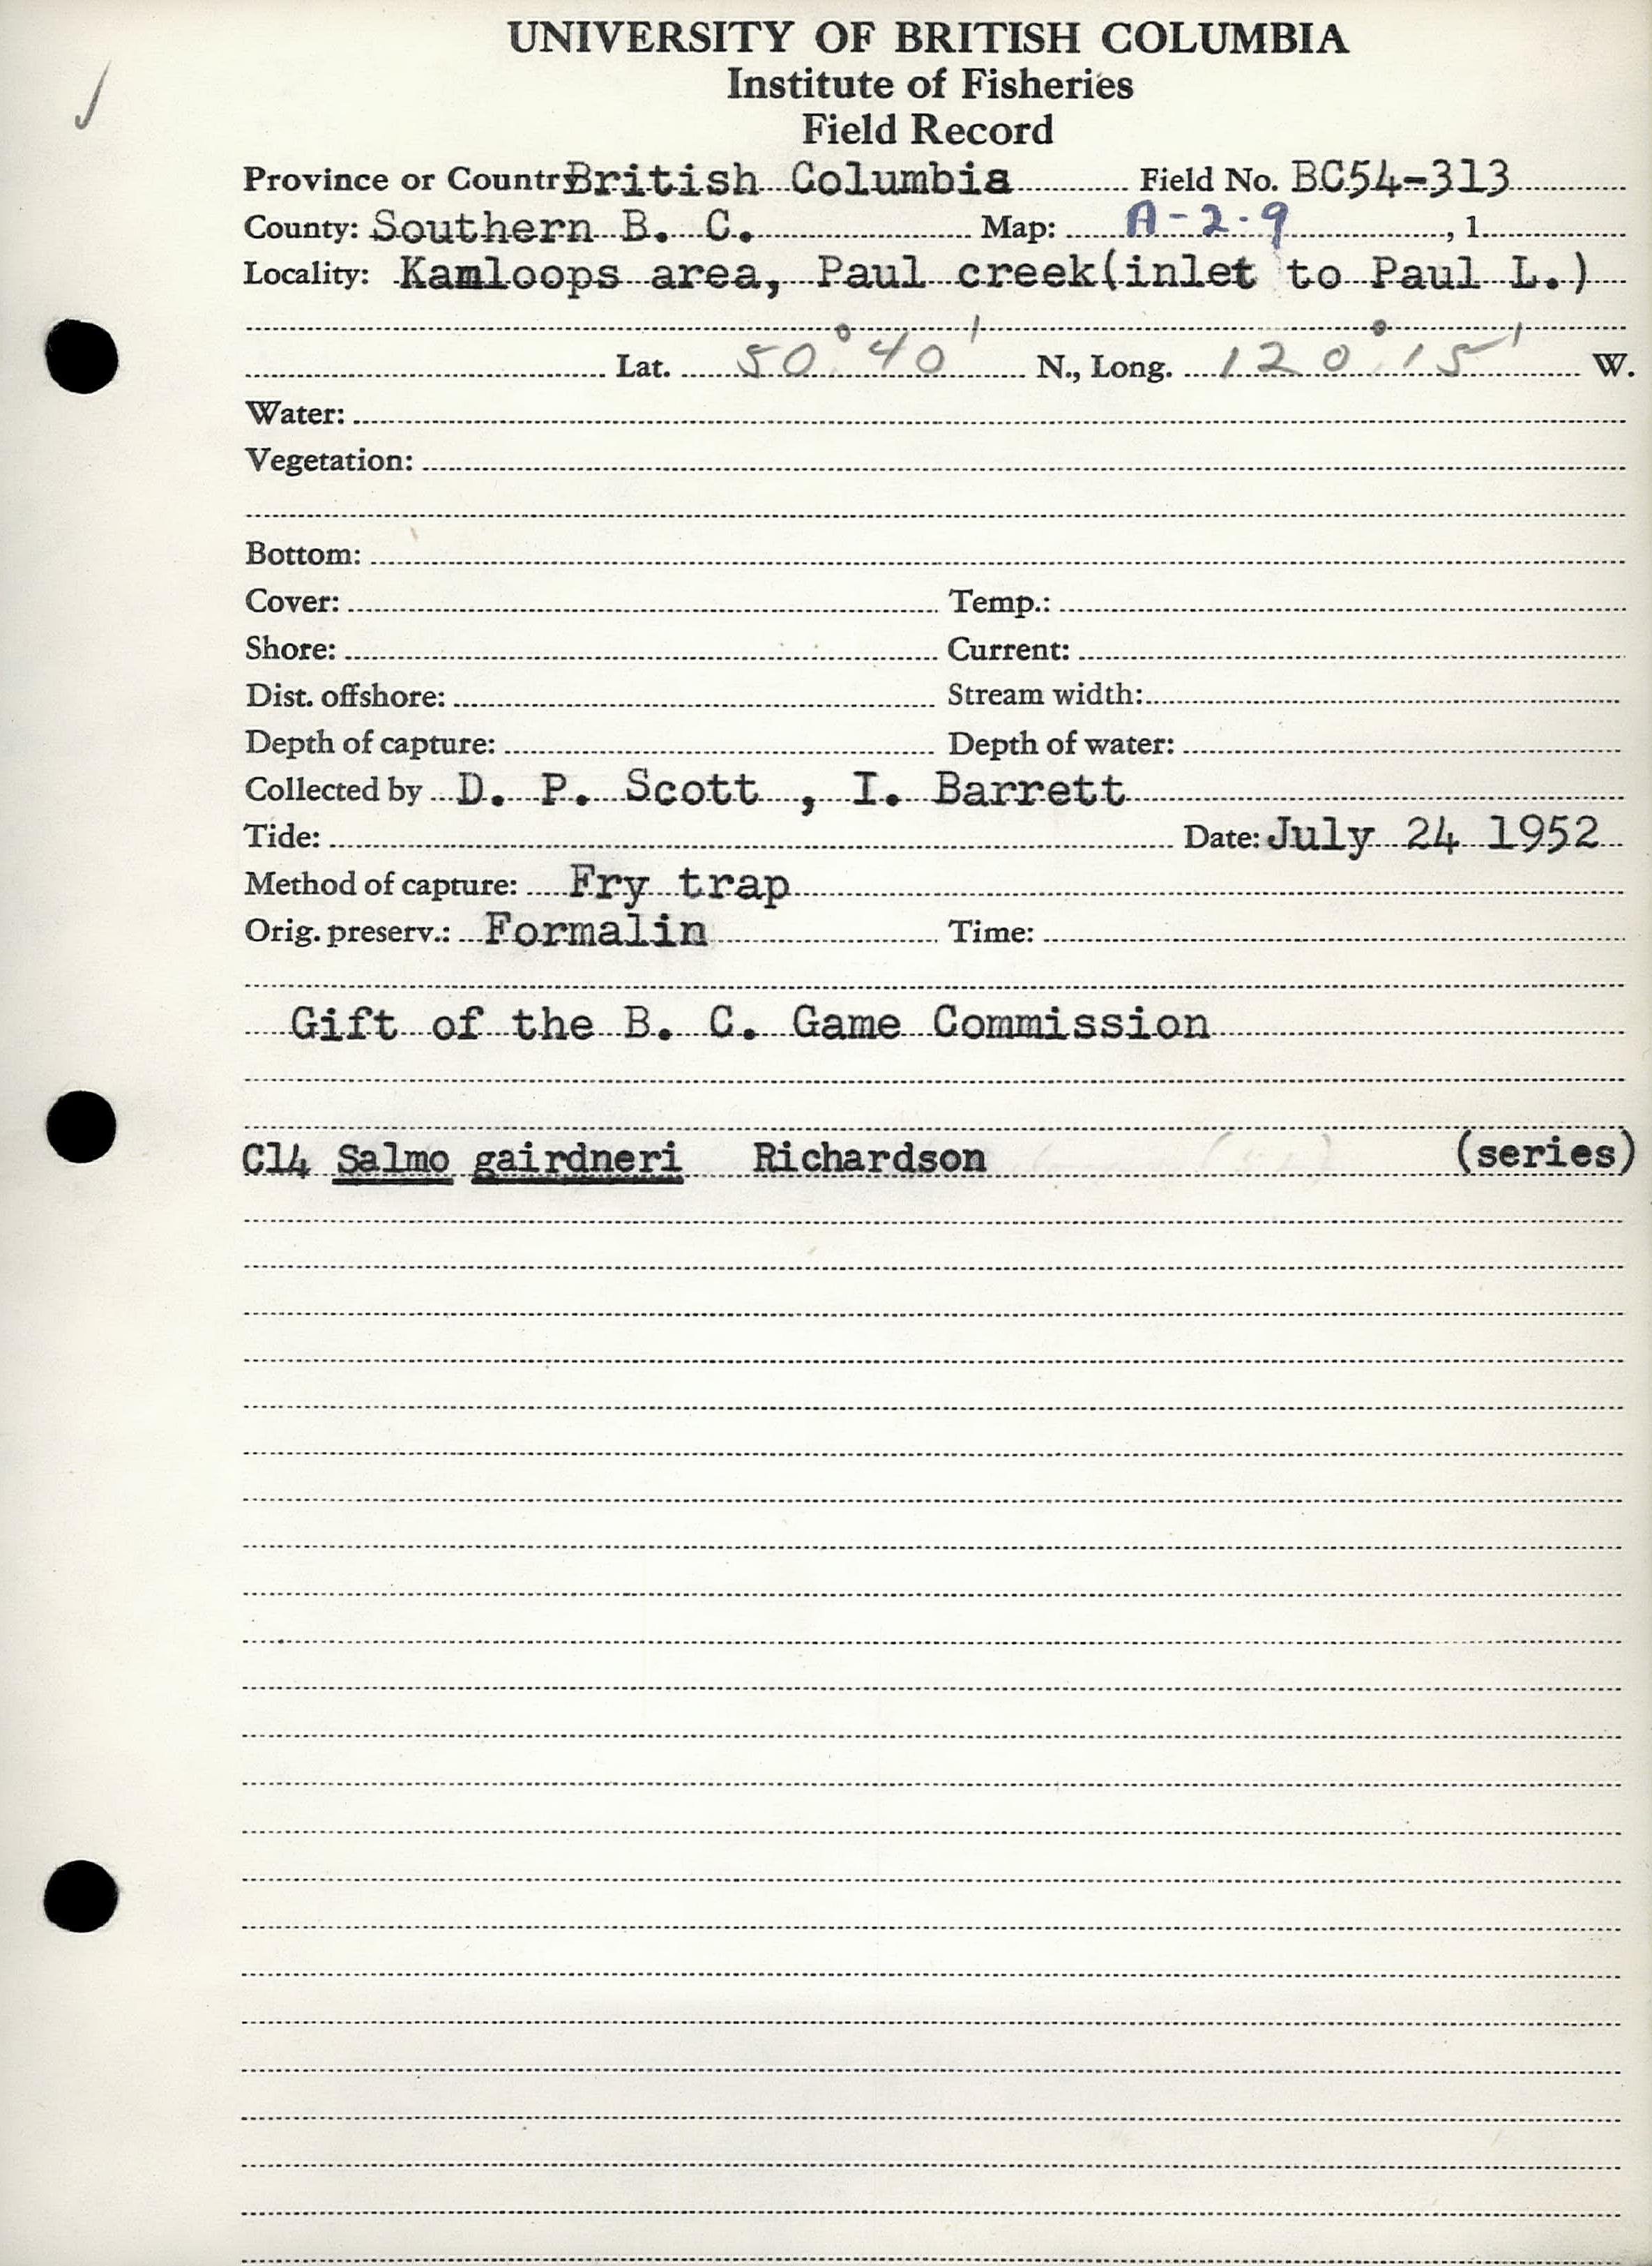 UNIVERSITY OF BRITISH COLUMBIA
Institute of Fisheries
Field Record
Province or Countr British Columbia Field No. BC54-313
County: Southern B. C. Map: A-2-9 , 1
Locality: Kamloops area, Paul creek(inlet to Paul L.)
Lat. 50° 40' N., Long. 120° 15' W.
Water:
Vegetation:
Bottom:
Cover: Temp.:
Shore: Current:
Dist. offshore: Stream width:
Depth of capture: Depth of water:
Collected by D. P. Scott , I. Barrett
Tide: Date: July 24 1952
Method of capture: Fry trap
Orig. preserv.: Formalin Time:
Gift of the B. C. Game Commission
C14 Salmo gairdneri Richardson (series)